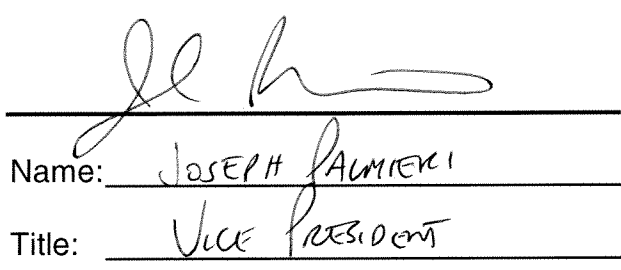 Name: JOSEPH PALMIERI
Title: VICE PRESIDENT